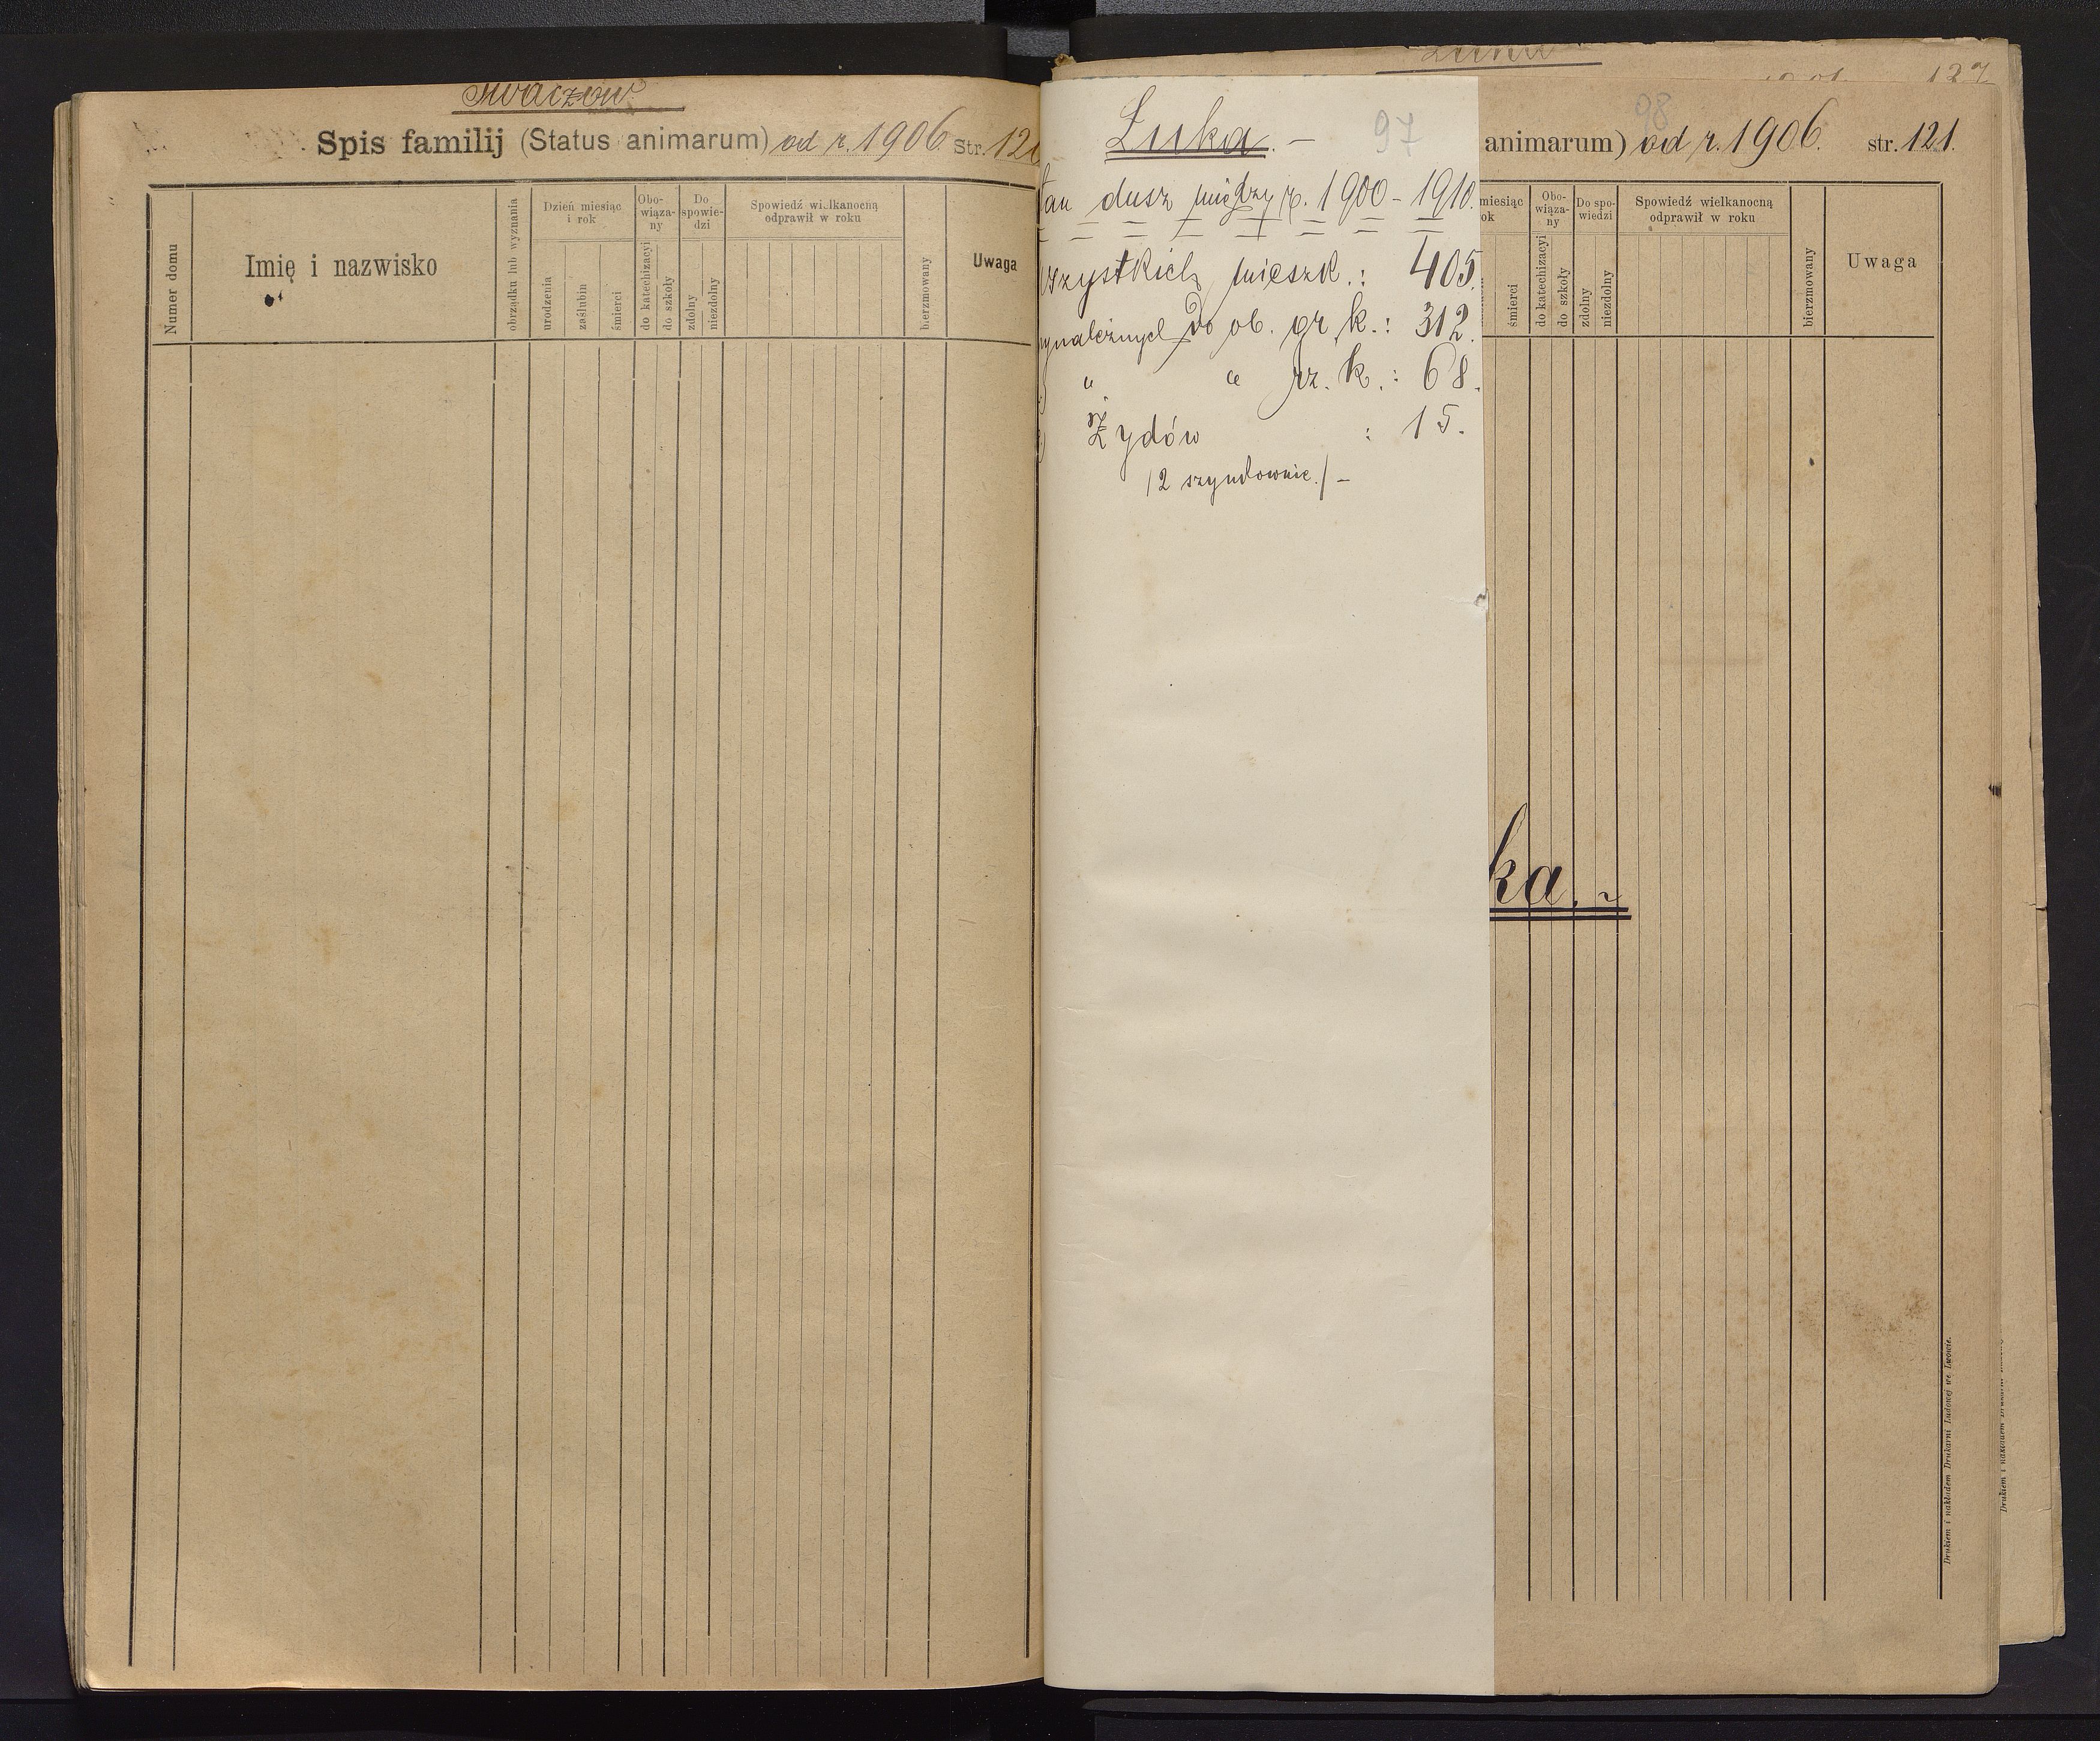 Iwaczów
Spis familij (Status animarum) od r. 1906. Str. 120
Numer domu
Imię i nazwisko
obrządku lub wyznania
Dzień miesiąc
i rok
urodzenia
zaślubin
śmierci
Obo-
wiąza-
ny
do katechizacyi
do szkoły
Do
spowie-
dzi
zdolny
niezdolny
Spowiedź wielkanocną
odprawił w roku
bierzmowany
Uwaga
Łuka. –
97
tan dusz między r. 1900 - 1910.
szystkich mieszk.: 405.
ynależnych do ob. gr. k.: 312.
" " rz. k.: 68.
Żydów : 15.
/2 szynkownie./ –
Łuka
127
98
animarum) od r. 1906. str. 121.
miesiąc
ok
śmierci
Obo-
wiąza-
ny
do katechizacyi
do szkoły
Do spo-
wiedzi
zdolny
niezdolny
Spowiedź wielkanocną
odprawił w roku
bierzmowany
Uwaga
ka. ~
Drukiem i nakładem Drukarni Ludowej we Lwowie.